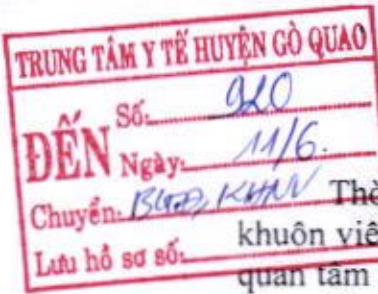 TRUNG TÂM Y TẾ HUYỆN GÒ QUAO
ĐẾN
Số: 920
Ngày: 11/6.
Chuyển: KHNV
Lưu hồ sơ số:
Thờ
khuôn viê
quan tâm